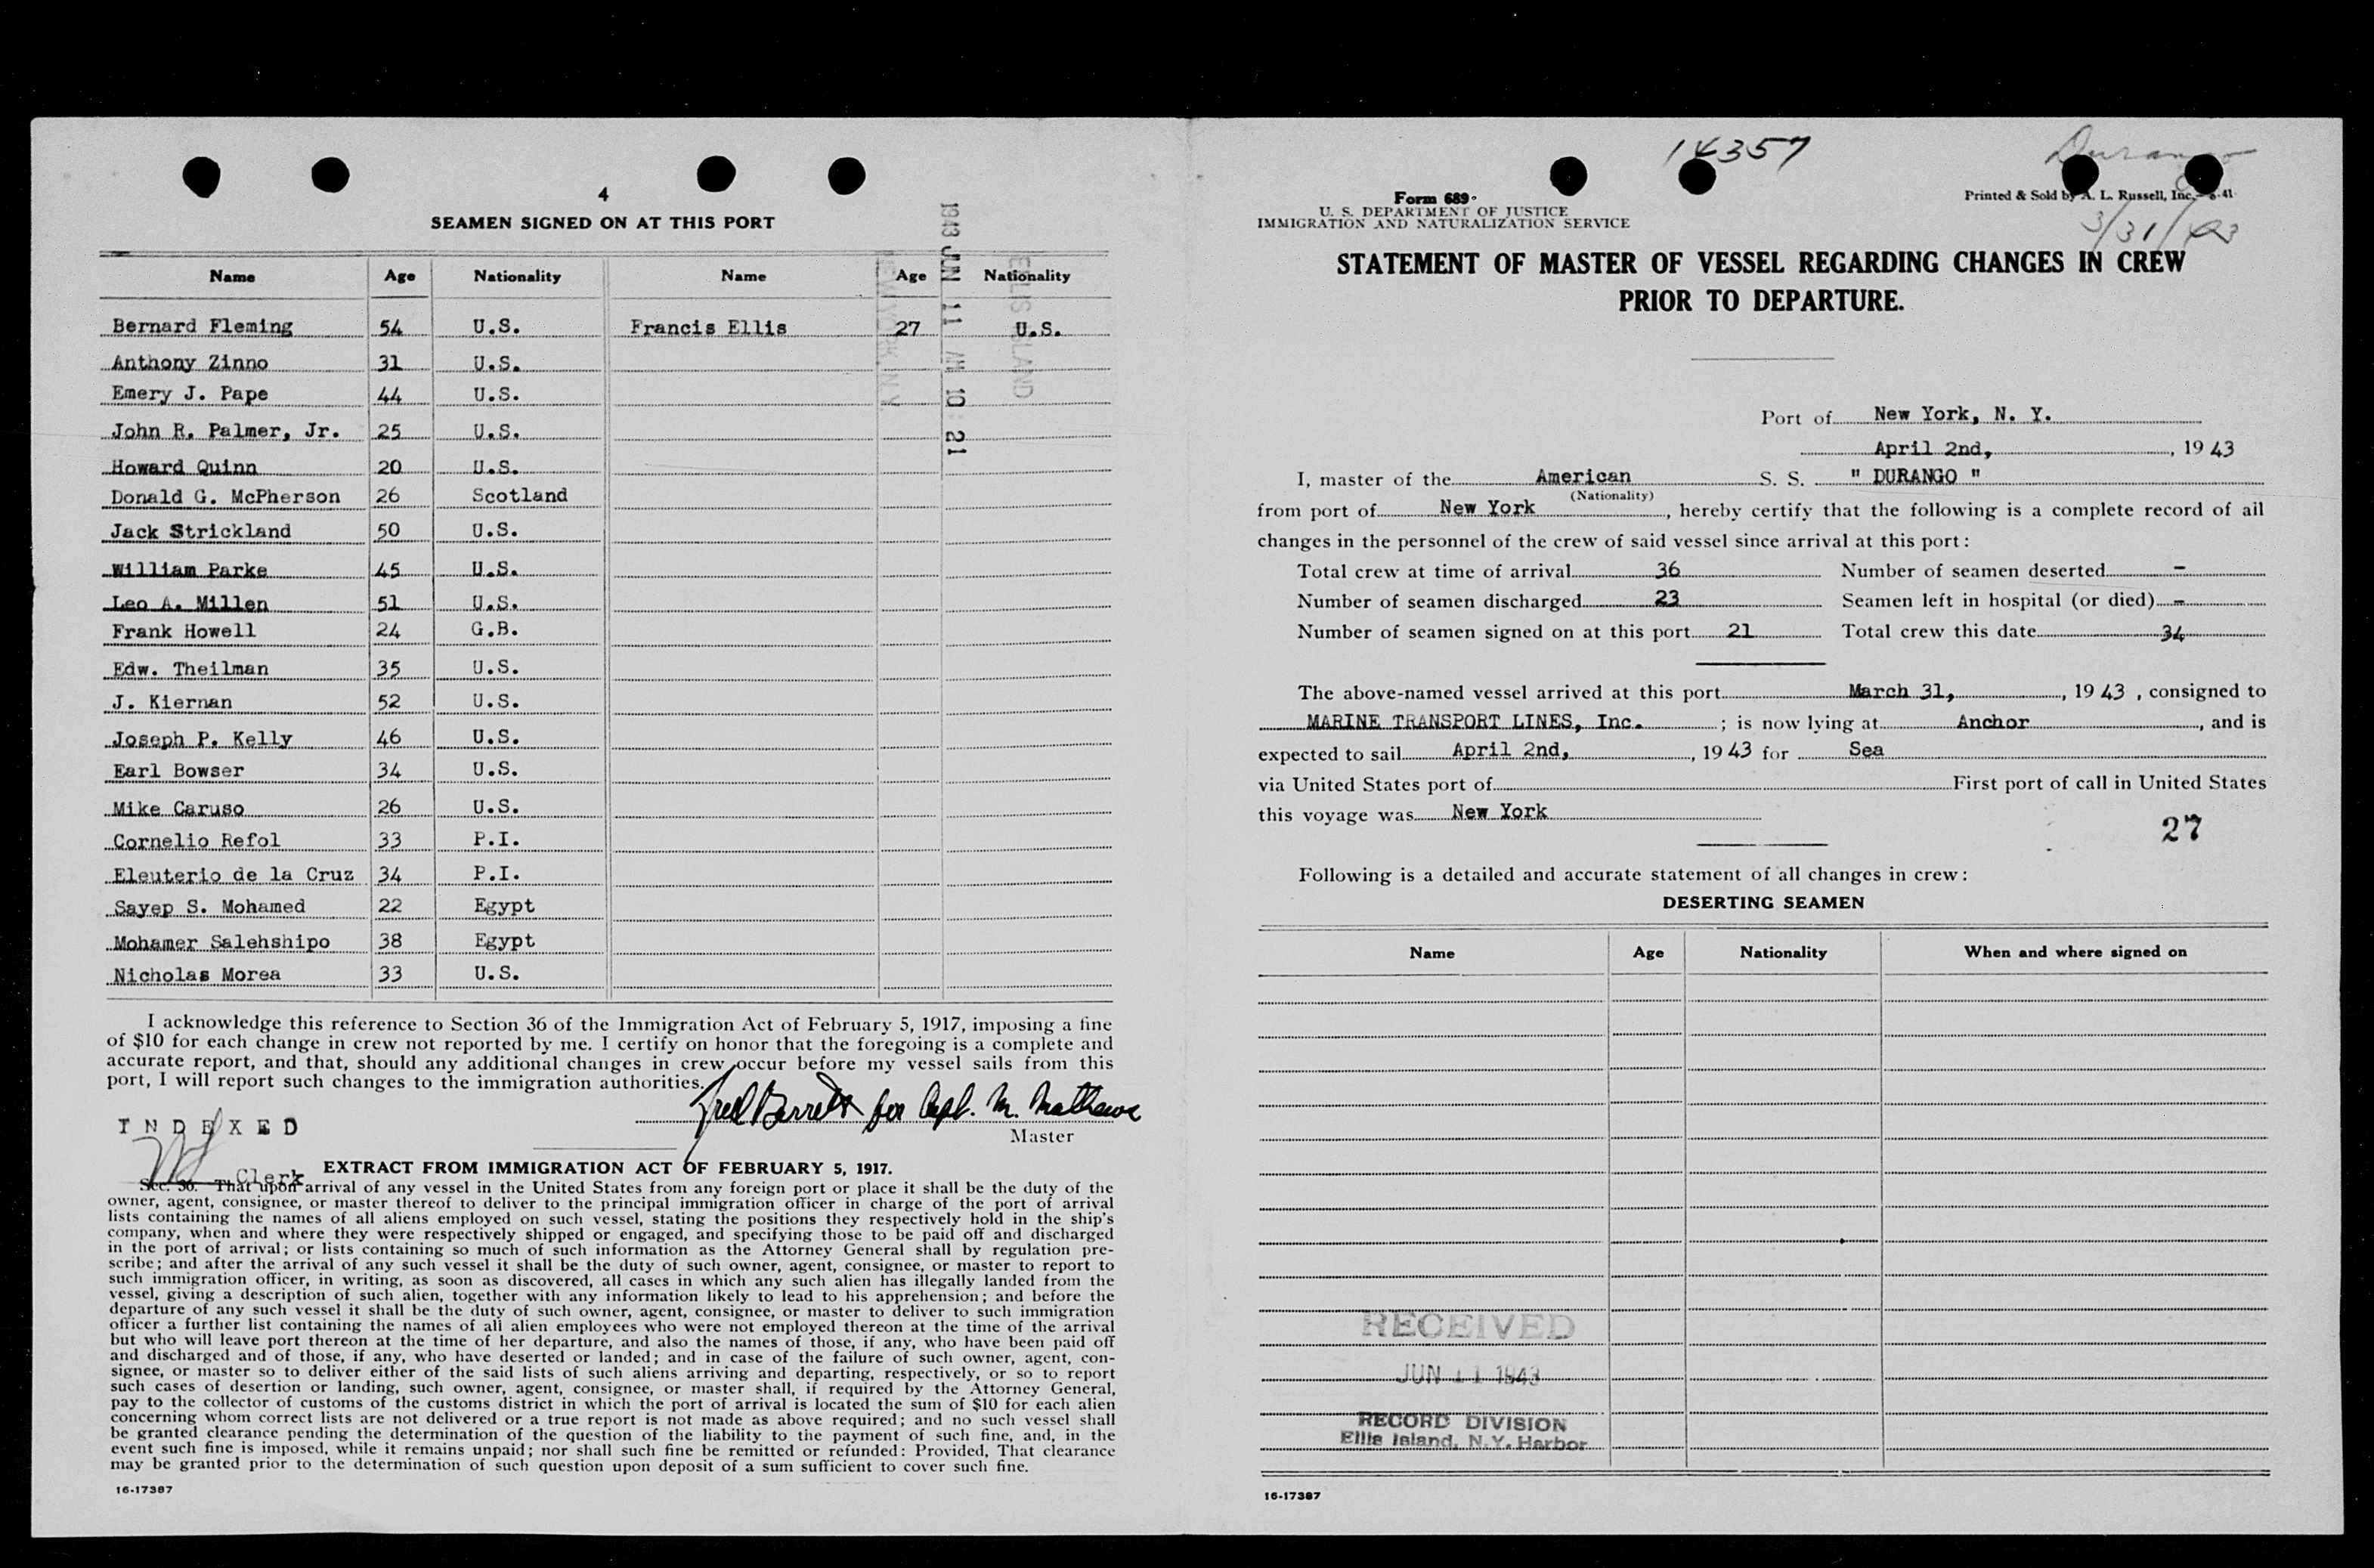 4
SEAMEN SIGNED ON AT THIS PORT
Name Age Nationality Name Age Nationality
Bernard Fleming 54 U.S. Francis Ellis 27 U.S.
Anthony Zinno 31 U.S.
Emery J. Pape 44 U.S.
John R. Palmer, Jr. 25 U.S.
Howard Quinn 20 U.S.
Donald G. McPherson 26 Scotland
Jack Strickland 50 U.S.
William Parke 45 U.S.
Leo A. Millen 51 U.S.
Frank Howell 24 G.B.
Edw. Theilman 35 U.S.
J. Kiernan 52 U.S.
Joseph P. Kelly 46 U.S.
Earl Bowser 34 U.S.
Mike Caruso 26 U.S.
Cornelio Refol 33 P.I.
Eleuterio de la Cruz 34 P.I.
Sayep S. Mohamed 22 Egypt
Mohamer Salehshipo 38 Egypt
Nicholas Morea 33 U.S.
1943 JUN 11 AM 10 21
ELLIS ISLAND
NEW YORK, N.Y.
I acknowledge this reference to Section 36 of the Immigration Act of February 5, 1917, imposing a fine
of $10 for each change in crew not reported by me. I certify on honor that the foregoing is a complete and
accurate report, and that, should any additional changes in crew occur before my vessel sails from this
port, I will report such changes to the immigration authorities.
Fred Barrett for Capt. M. Mathews
Master
INDEXED
Clerk
EXTRACT FROM IMMIGRATION ACT OF FEBRUARY 5, 1917.
Sec. 36. That upon arrival of any vessel in the United States from any foreign port or place it shall be the duty of the
owner, agent, consignee, or master thereof to deliver to the principal immigration officer in charge of the port of arrival
lists containing the names of all aliens employed on such vessel, stating the positions they respectively hold in the ship's
company, when and where they were respectively shipped or engaged, and specifying those to be paid off and discharged
in the port of arrival; or lists containing so much of such information as the Attorney General shall by regulation pre-
scribe; and after the arrival of any such vessel it shall be the duty of such owner, agent, consignee, or master to report to
such immigration officer, in writing, as soon as discovered, all cases in which any such alien has illegally landed from the
vessel, giving a description of such alien, together with any information likely to lead to his apprehension; and before the
departure of any such vessel it shall be the duty of such owner, agent, consignee, or master to deliver to such immigration
officer a further list containing the names of all alien employees who were not employed thereon at the time of the arrival
but who will leave port thereon at the time of her departure, and also the names of those, if any, who have been paid off
and discharged and of those, if any, who have deserted or landed; and in case of the failure of such owner, agent, con-
signee, or master so to deliver either of the said lists of such aliens arriving and departing, respectively, or so to report
such cases of desertion or landing, such owner, agent, consignee, or master shall, if required by the Attorney General,
pay to the collector of customs of the customs district in which the port of arrival is located the sum of $10 for each alien
concerning whom correct lists are not delivered or a true report is not made as above required; and no such vessel shall
be granted clearance pending the determination of the question of the liability to the payment of such fine, and, in the
event such fine is imposed, while it remains unpaid; nor shall such fine be remitted or refunded: Provided, That clearance
may be granted prior to the determination of such question upon deposit of a sum sufficient to cover such fine.
16-17387
14357
Durango
Form 689
U. S. DEPARTMENT OF JUSTICE
IMMIGRATION AND NATURALIZATION SERVICE
Printed & Sold by A. L. Russell, Inc.
3/31/43
STATEMENT OF MASTER OF VESSEL REGARDING CHANGES IN CREW
PRIOR TO DEPARTURE.
Port of New York, N. Y.
April 2nd, , 1943
I, master of the American S. S. " DURANGO "
(Nationality)
from port of New York , hereby certify that the following is a complete record of all
changes in the personnel of the crew of said vessel since arrival at this port:
Total crew at time of arrival 36 Number of seamen deserted -
Number of seamen discharged 23 Seamen left in hospital (or died) -
Number of seamen signed on at this port 21 Total crew this date 34
The above-named vessel arrived at this port March 31, , 1943 , consigned to
MARINE TRANSPORT LINES, Inc. ; is now lying at Anchor , and is
expected to sail April 2nd, , 1943 for Sea
via United States port of First port of call in United States
this voyage was New York
27
Following is a detailed and accurate statement of all changes in crew:
DESERTING SEAMEN
Name Age Nationality When and where signed on
RECEIVED
JUN 11 1943
RECORD DIVISION
Ellis Island, N.Y. Harbor
16-17387